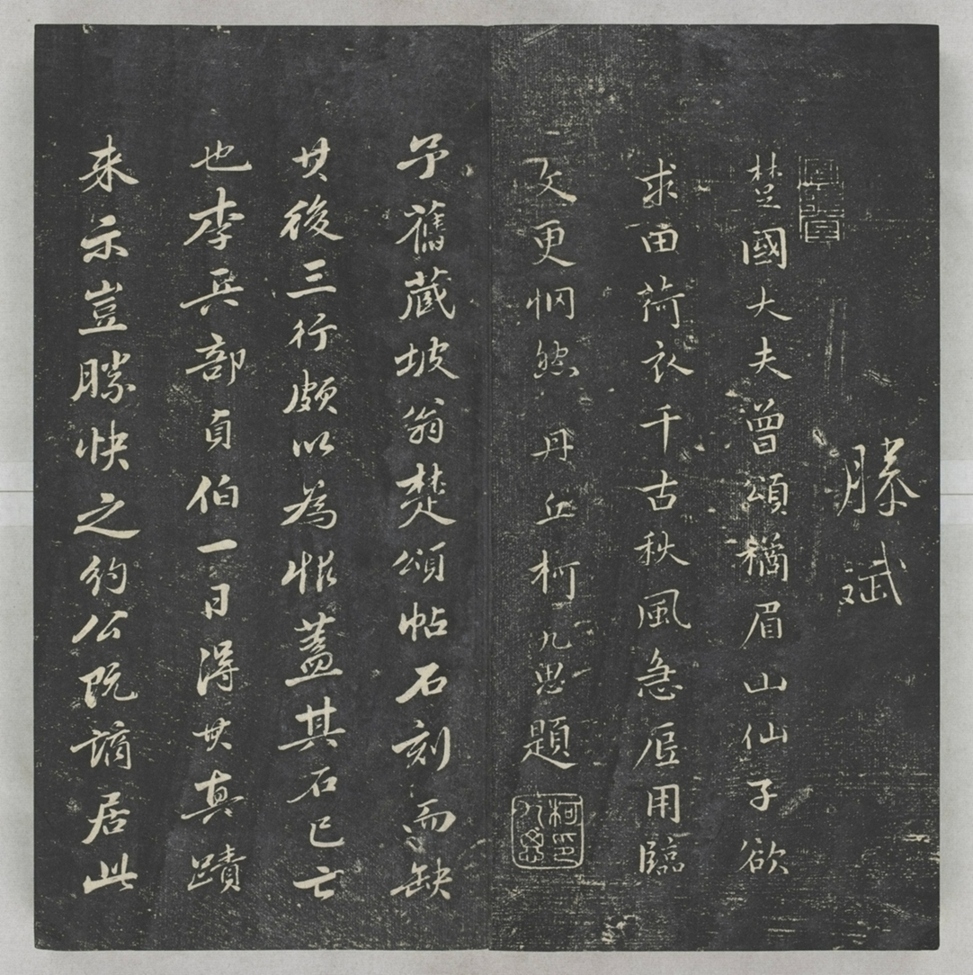 滕斌
楚國大夫曾頌橘眉山仙子欲
求田荷衣千古秋風急展用臨
文更惘然丹丘柯九思題
柯氏九思
予舊藏坡翁楚頌帖石刻而缺
其後三行頗以為恨蓋其石已亡
也李兵部貞伯一日得其真蹟
来示豈勝快之約公既謫居此